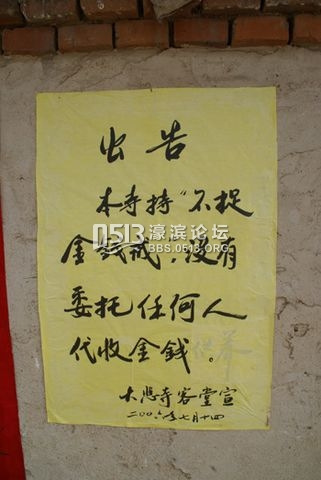 出告
本寺持“不捉
金钱戒，没有
委托任何人
代收金錢。
大悲寺客堂宣
二00六年七月十四
0513濠滨论坛
BBS.0513.ORG